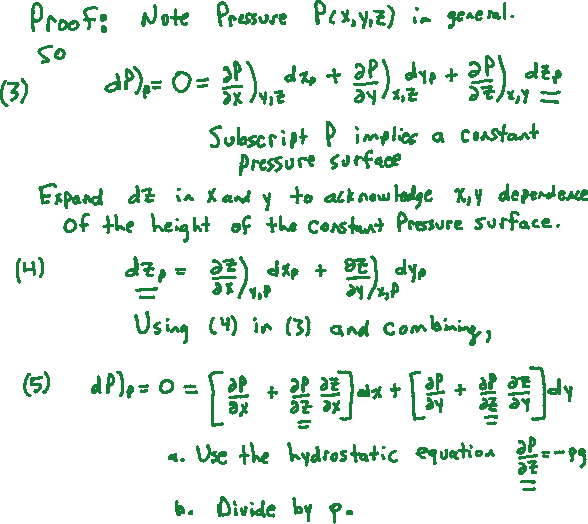 Proof: Note Pressure P(x,y,z) in general.
so
(3) dP)_p = 0 = ∂P/∂x)_{y,z} dx_p + ∂P/∂y)_{x,z} dy_p + ∂P/∂z)_{x,y} dz_p
Subscript P implies a constant
pressure surface
Expand dz in x and y to acknowledge x,y dependence
of the height of the constant Pressure surface.
(4) dz_p = ∂z/∂x)_{y,p} dx_p + ∂z/∂y)_{x,p} dy_p
Using (4) in (3) and combining,
(5) dP)_p = 0 = [∂P/∂x + ∂P/∂z ∂z/∂x] dx + [∂P/∂y + ∂P/∂z ∂z/∂y] dy
a. Use the hydrostatic equation ∂P/∂z = -ρg
b. Divide by ρ.